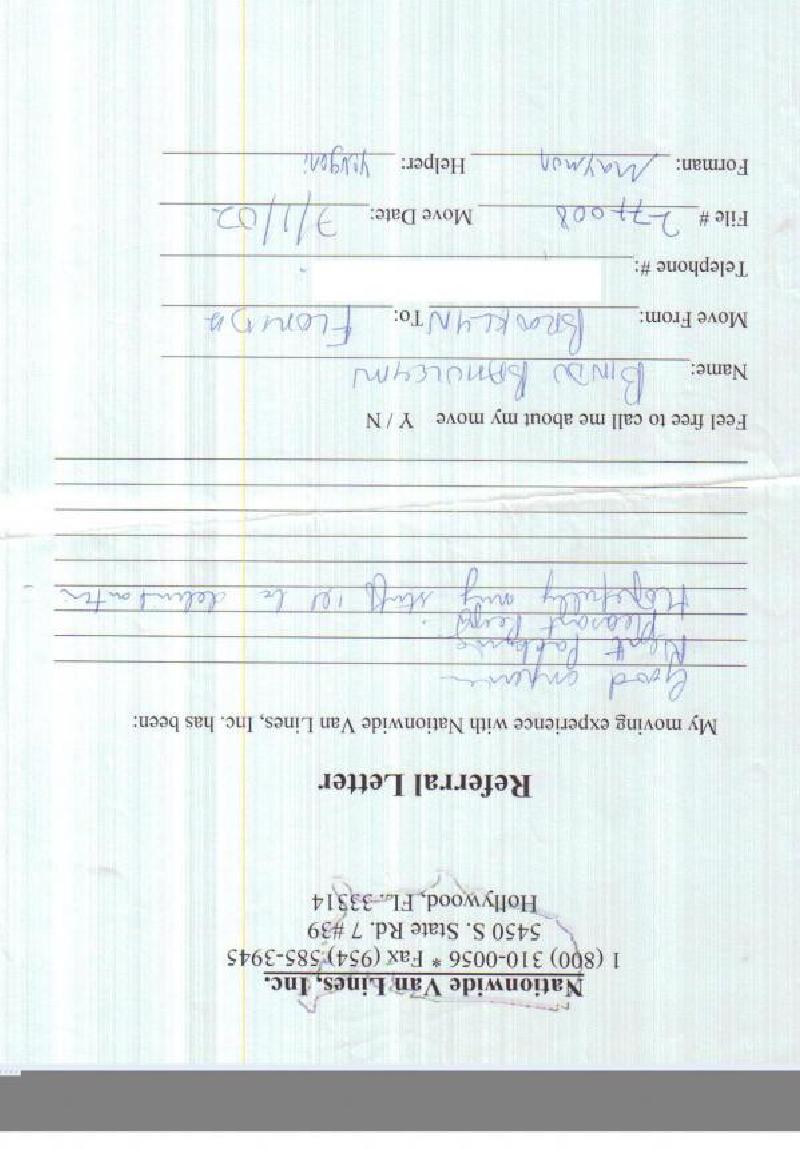 Nationwide Van Lines, Inc.
1 (800) 310-0056 * Fax (954) 585-3945
5450 S. State Rd. 7 #39
Hollywood, FL. 33314
Referral Letter
My moving experience with Nationwide Van Lines, Inc. has been:
Good
pleasant
Hopefully my stuff be
Feel free to call me about my move Y / N
Name: BINDU
Move From: BROOKLYN To: FLORIDA
Telephone #:
File # 277008 Move Date: 7/1/02
Forman: Maymon Helper: